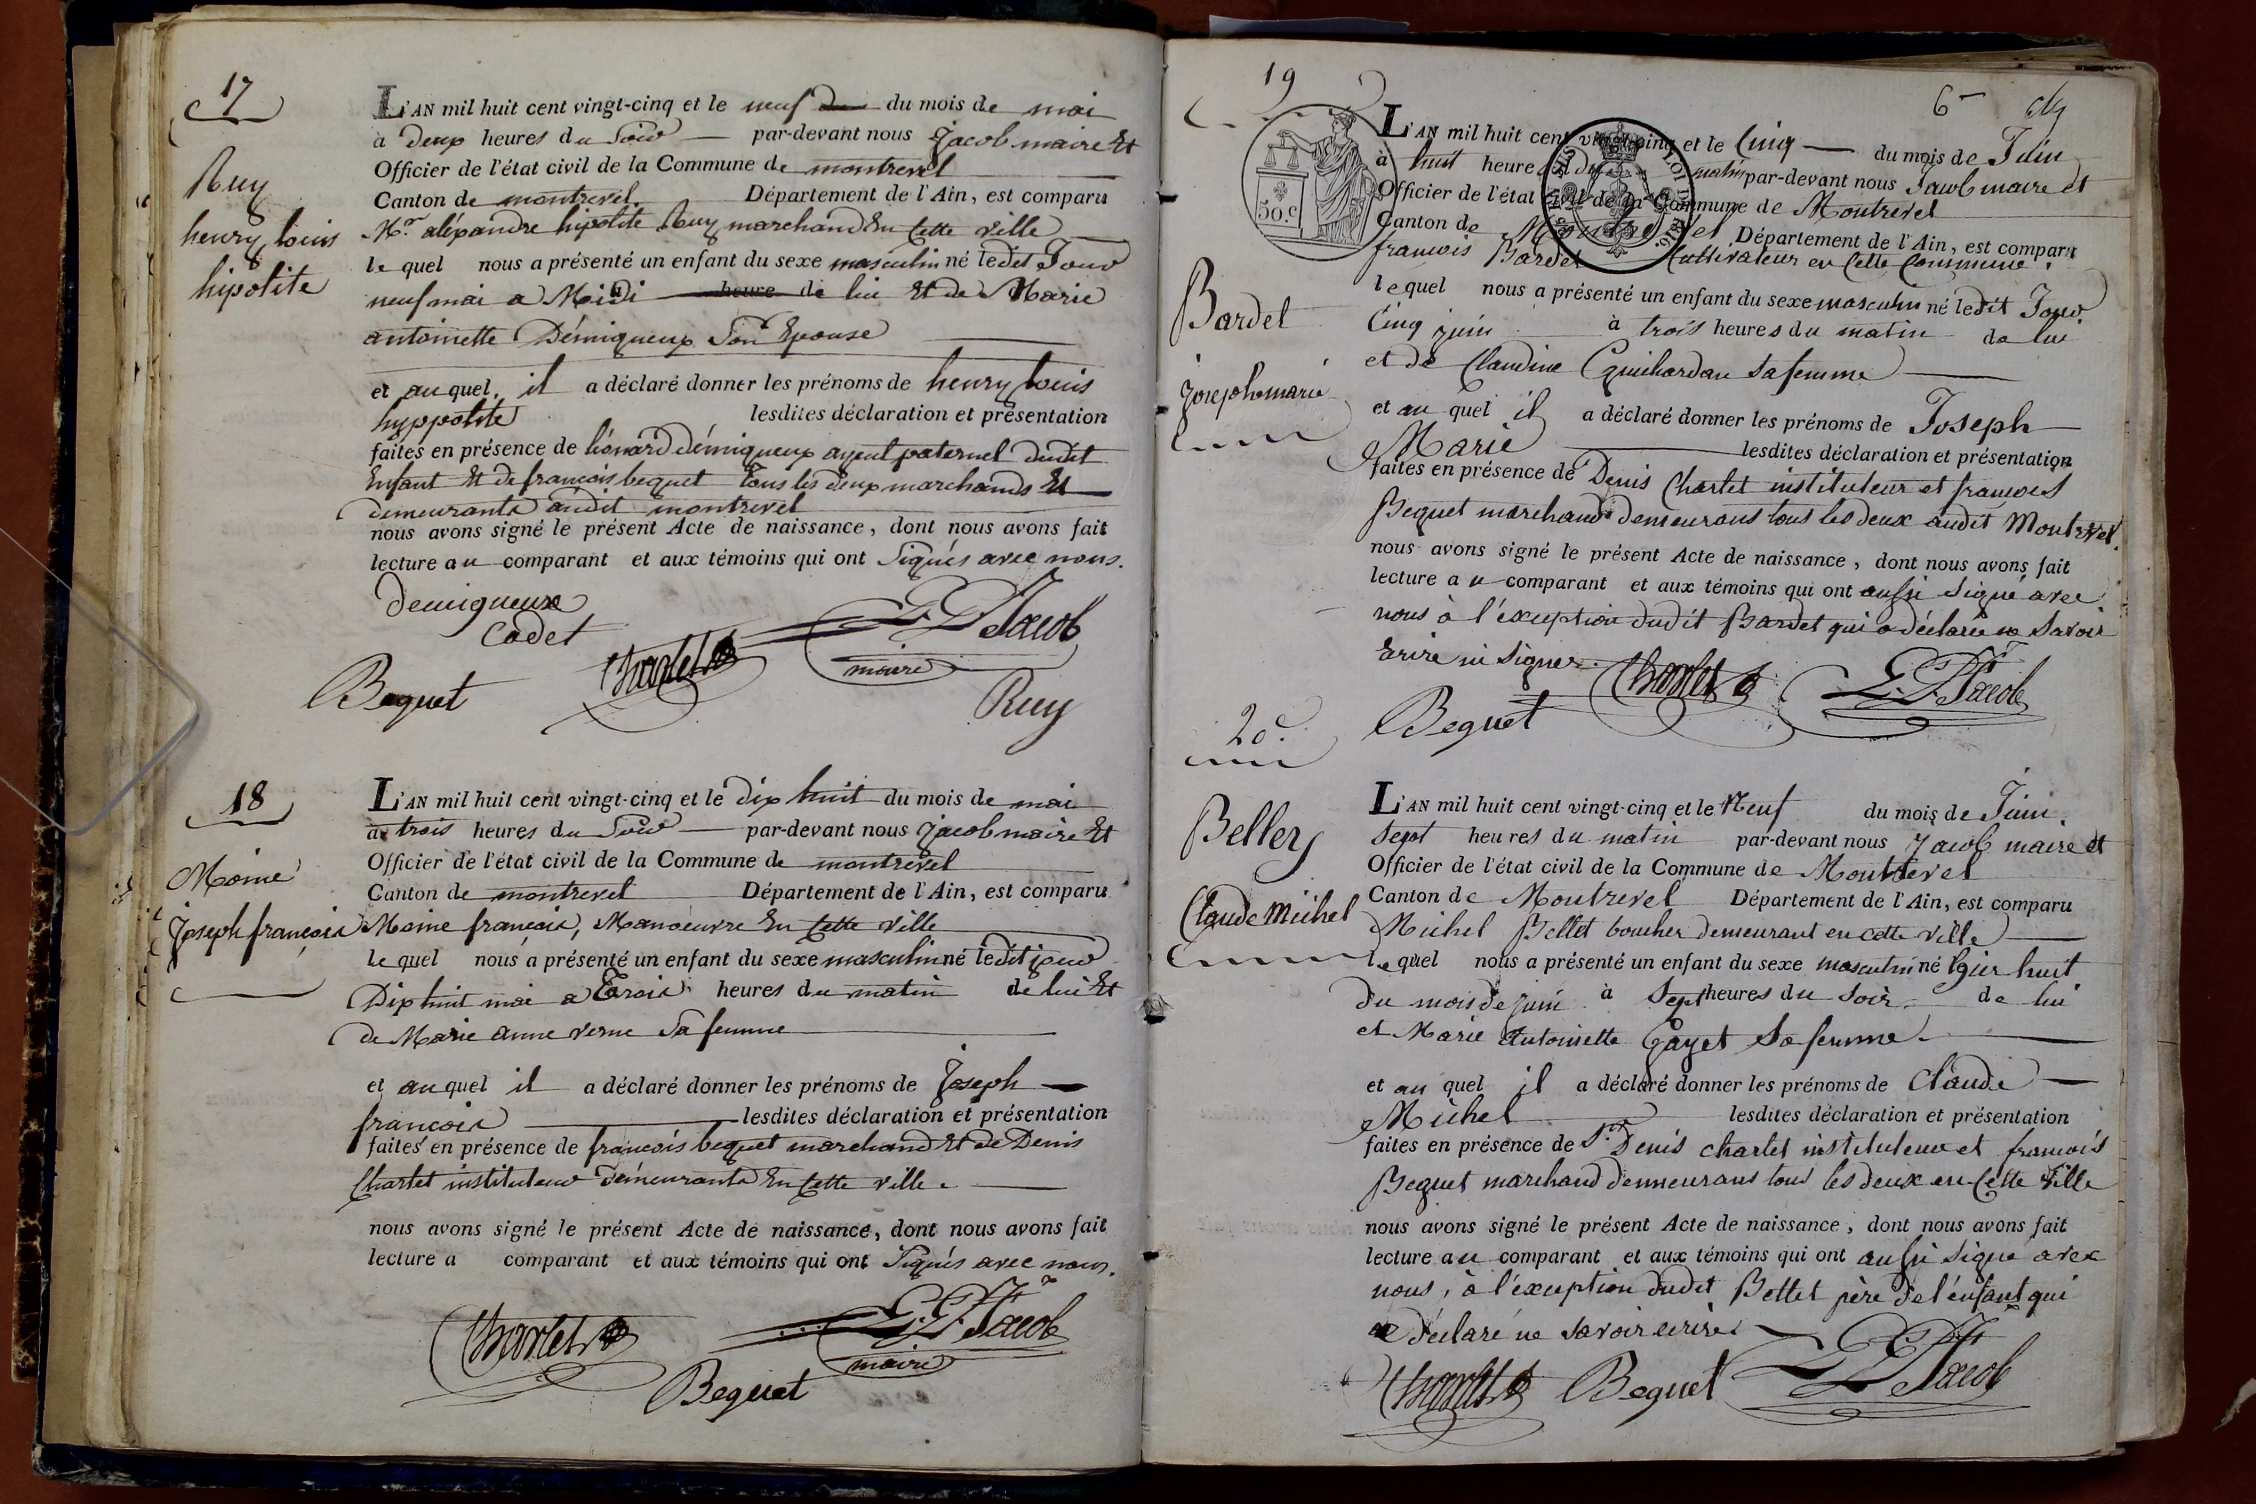 17
Ruy
henry louis
hipolite
L'AN mil huit cent vingt-cinq et le neuf du mois de mai
à deux heures du Soir par-devant nous Jacob maire Et
Officier de l'état civil de la Commune de montrevel
Canton de montrevel. Département de l'Ain, est comparu
Mr. aléxandre hipolite Ruy marchand En Cette ville
le quel nous a présenté un enfant du sexe masculin né ledit Jour
neuf mai a Midi heure de lui Et de Marie
antoinette Démiqueux Son Epouse
et au quel il a déclaré donner les prénoms de henry louis
hyppolite lesdites déclaration et présentation
faites en présence de léonard démiqueux ayeul paternel dudit
Enfant Et de françois bequet tous les deux marchands Et
demeurants audit montrevel
nous avons signé le présent Acte de naissance, dont nous avons fait
lecture au comparant et aux témoins qui ont Signés avec nous.
Demiqueux
Cadet
Charlet
Jacob
maire
Bequet
Ruy
18
Moine
Joseph françois
L'AN mil huit cent vingt-cinq et le dix huit du mois de mai
à trois heures du Soir par-devant nous Jacob maire Et
Officier de l'état civil de la Commune de montrevel
Canton de montrevel Département de l'Ain, est comparu
Moine françois, Manoeuvre En Cette ville
le quel nous a présenté un enfant du sexe masculin né ledit jour
Dix huit mai a Trois heures du matin de lui Et
de Marie anne verne Sa femme
et au quel il a déclaré donner les prénoms de Joseph
françois lesdites déclaration et présentation
faites en présence de françois bequet marchand Et de Denis
Charlet instituteur Démeurants En Cette ville.
nous avons signé le présent Acte de naissance, dont nous avons fait
lecture a comparant et aux témoins qui ont Signés avec nous.
Charlet
Jacob
maire
Bequet
19
6
Bardet
Joseph marie
50.c
L'AN mil huit cent vingt-cinq et le Cinq du mois de Juin
à huit heures du matin par-devant nous Jacob maire et
Officier de l'état civil de la Commune de Montrevel
Canton de Montrevel Département de l'Ain, est comparu
francois Bardet Cultivateur en Cette Commune.
le quel nous a présenté un enfant du sexe masculin né ledit Jour
Cinq juin à trois heures du matin de lui
et de Claudine Guichardan sa femme
et au quel il a déclaré donner les prénoms de Joseph
Marie lesdites déclaration et présentation
faites en présence de Denis Charlet instituteur et francois
Bequet marchand demeurans tous les deux audit Montrevel.
nous avons signé le présent Acte de naissance, dont nous avons fait
lecture au comparant et aux témoins qui ont aussi signé avec
nous à l'éxception dudit Bardet qui a déclaré ne Savoir
Ecrire ni Signer.
Charlet
Jacob
Bequet
20.
Bellet
Claude Michel
L'AN mil huit cent vingt-cinq et le Neuf du mois de Juin.
Sept heures du matin par-devant nous Jacob maire et
Officier de l'état civil de la Commune de Montrevel
Canton de Montrevel Département de l'Ain, est comparu
Michel Bellet boucher demeurant en cette ville
le quel nous a présenté un enfant du sexe masculin né hier huit
du mois de juin à Sept heures du Soir de lui
et Marie Antoinette Gayet Sa femme
et au quel il a déclaré donner les prénoms de Claude
Michel lesdites déclaration et présentation
faites en présence de Sr. Denis Charlet instituteur et francois
Bequet marchand demeurans tous les deux en Cette Ville
nous avons signé le présent Acte de naissance, dont nous avons fait
lecture au comparant et aux témoins qui ont aussi signé avec
nous, à l'éxception dudit Bellet père de l'enfant qui
a déclaré ne savoir écrire.
Charlet
Bequet
Jacob